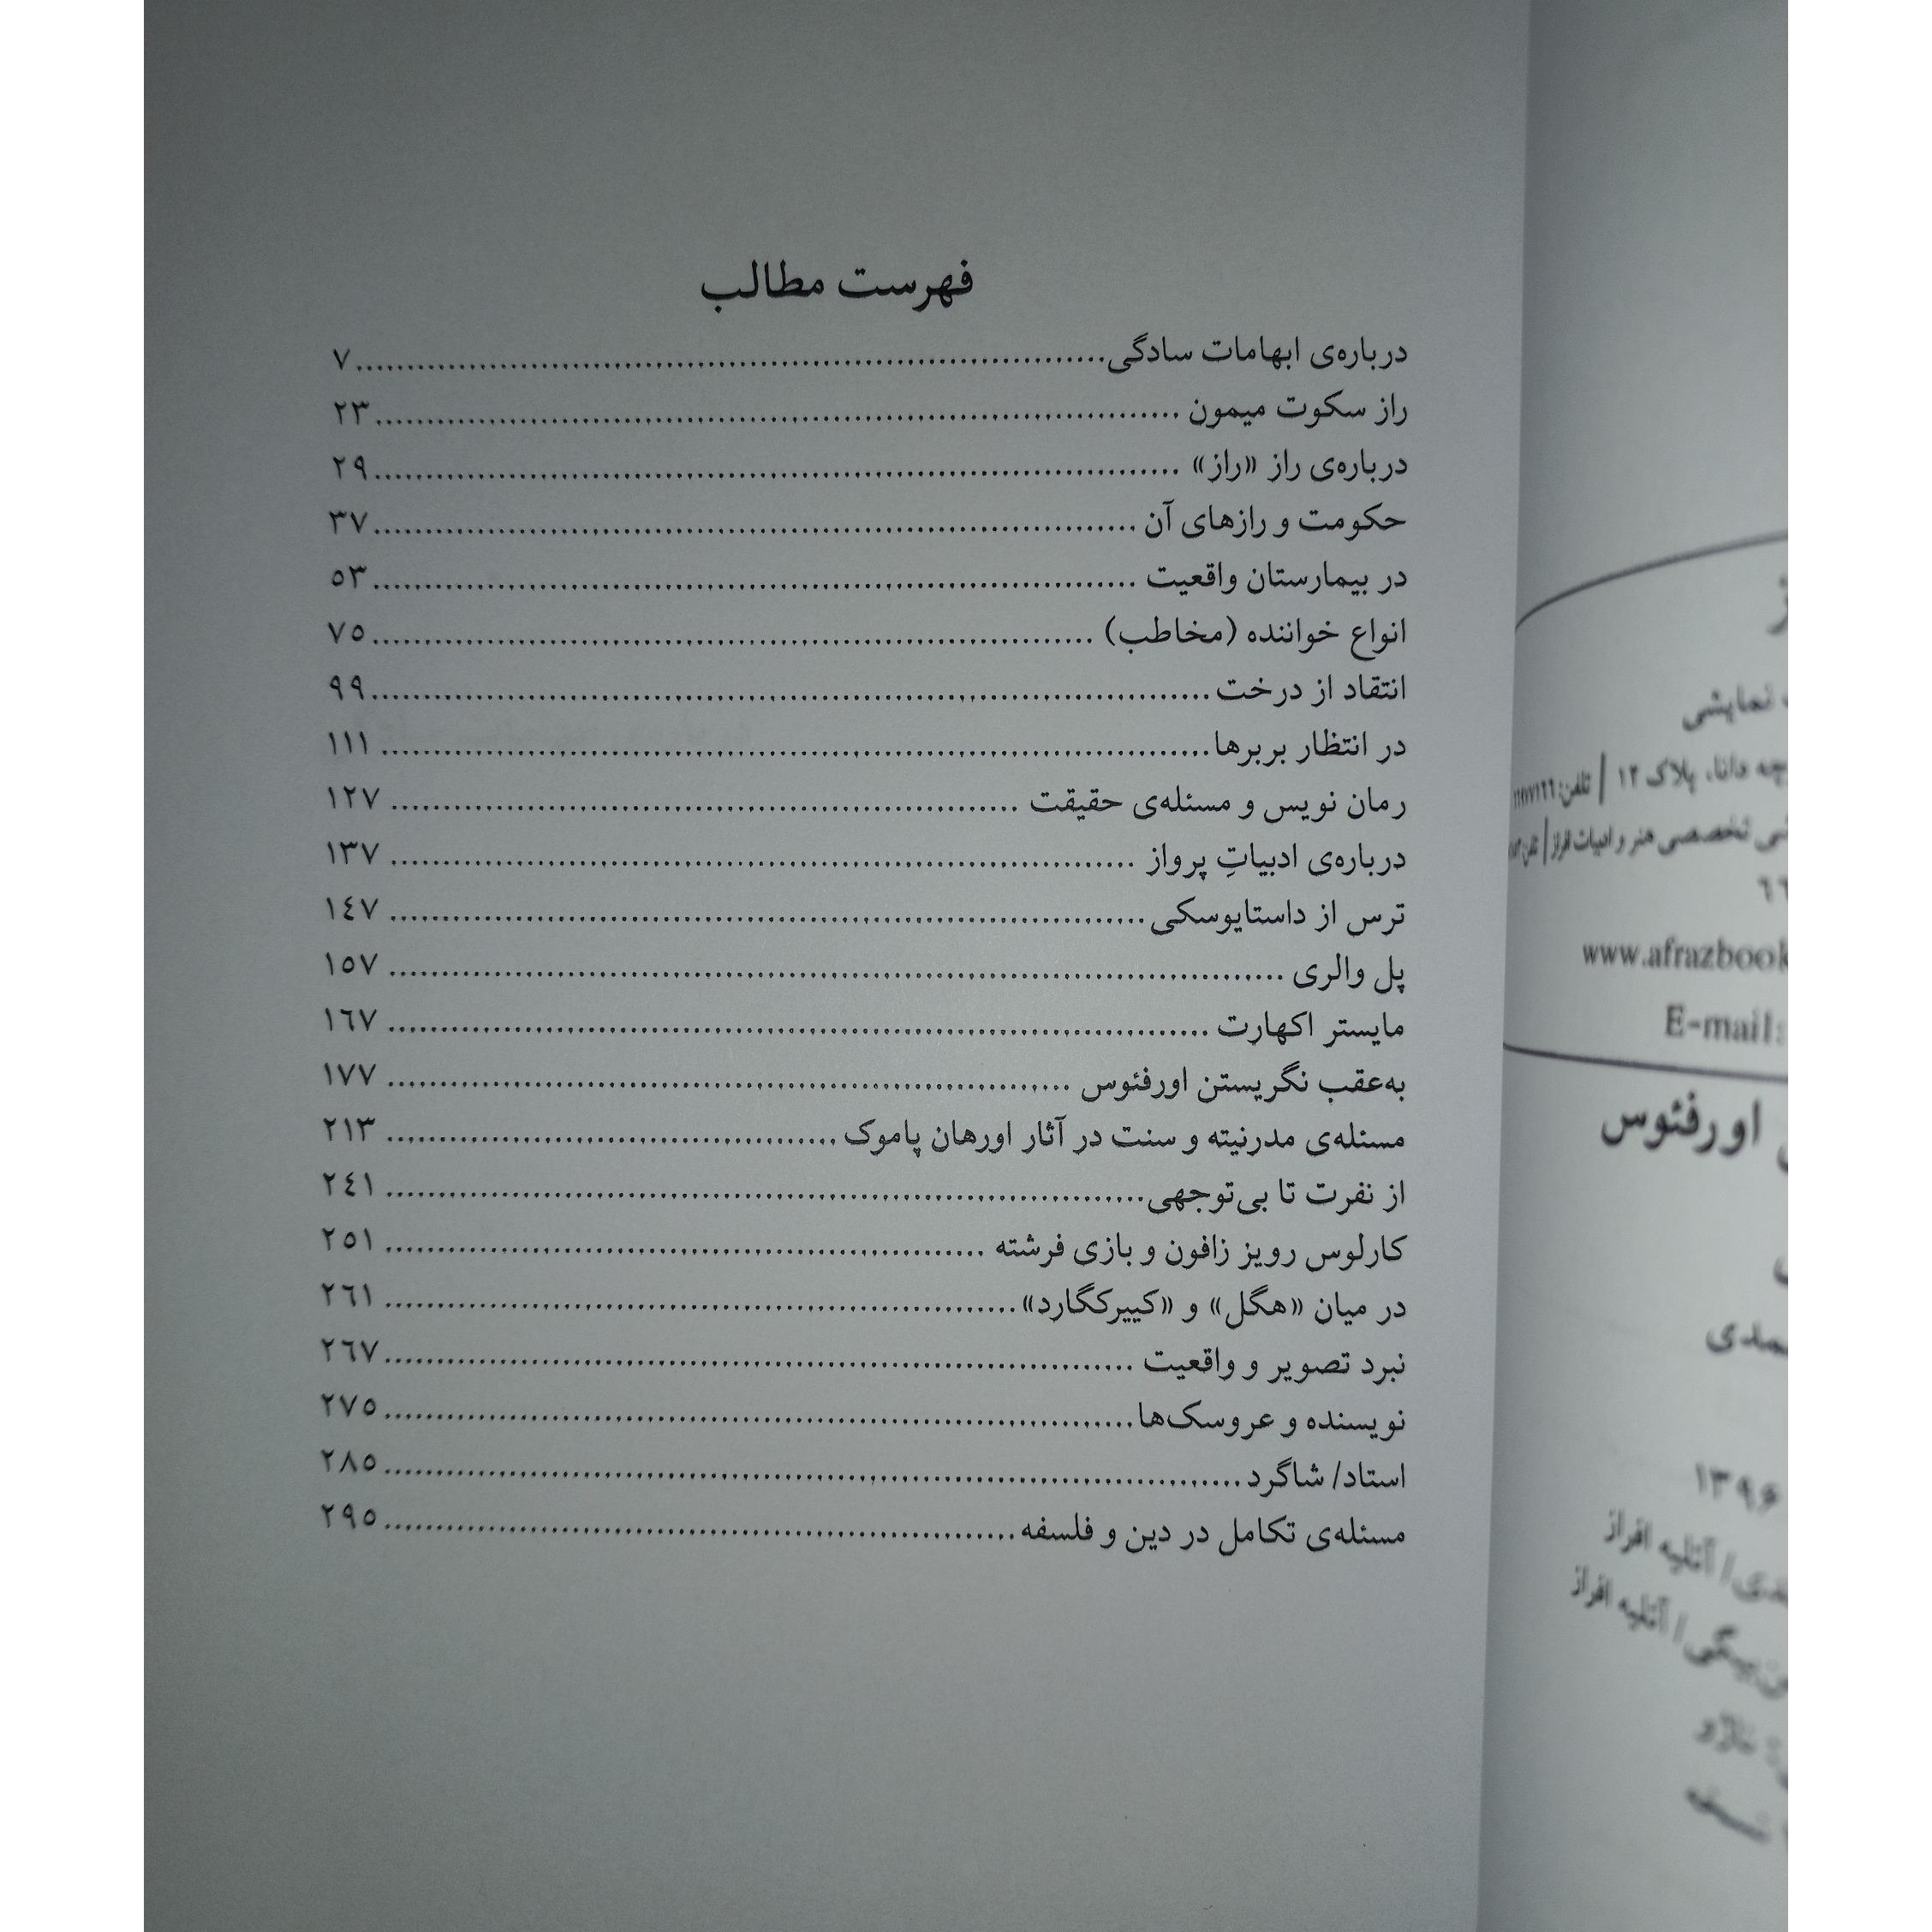 فهرست مطالب
درباره‌ی ابهامات سادگی................................................................................٧
راز سکوت میمون ................................................................................٢٣
درباره‌ی راز «راز» ................................................................................٢٩
حکومت و رازهای آن ................................................................................٣٧
در بیمارستان واقعیت ................................................................................٥٣
انواع خواننده (مخاطب) ................................................................................٧٥
انتقاد از درخت................................................................................٩٩
در انتظار بربرها................................................................................ ١١١
رمان نویس و مسئله‌ی حقیقت ................................................................................ ١٢٧
درباره‌ی ادبیاتِ پرواز ................................................................................ ١٣٧
ترس از داستایوسکی................................................................................ ١٤٧
پل والری ................................................................................ ١٥٧
مایستر اکهارت ................................................................................ ١٦٧
به‌عقب نگریستن اورفئوس ................................................................................ ١٧٧
مسئله‌ی مدرنیته و سنت در آثار اورهان پاموک ................................................................................ ٢١٣
از نفرت تا بی‌توجهی................................................................................ ٢٤١
کارلوس رویز زافون و بازی فرشته ................................................................................ ٢٥١
در میان «هگل» و «کییرکگارد»................................................................................ ٢٦١
نبرد تصویر و واقعیت ................................................................................٢٦٧
نویسنده و عروسک‌ها................................................................................٢٧٥
استاد/ شاگرد................................................................................٢٨٥
مسئله‌ی تکامل در دین و فلسفه................................................................................٢٩٥
نمایشی
دانا، پلاک ١٢ | تلفن:
تخصصی هنر و ادبیات افراز |
www.afrazbook
E-mail:
اورفئوس
١٣٩۶
/ آتلیه افراز
/ آتلیه افراز